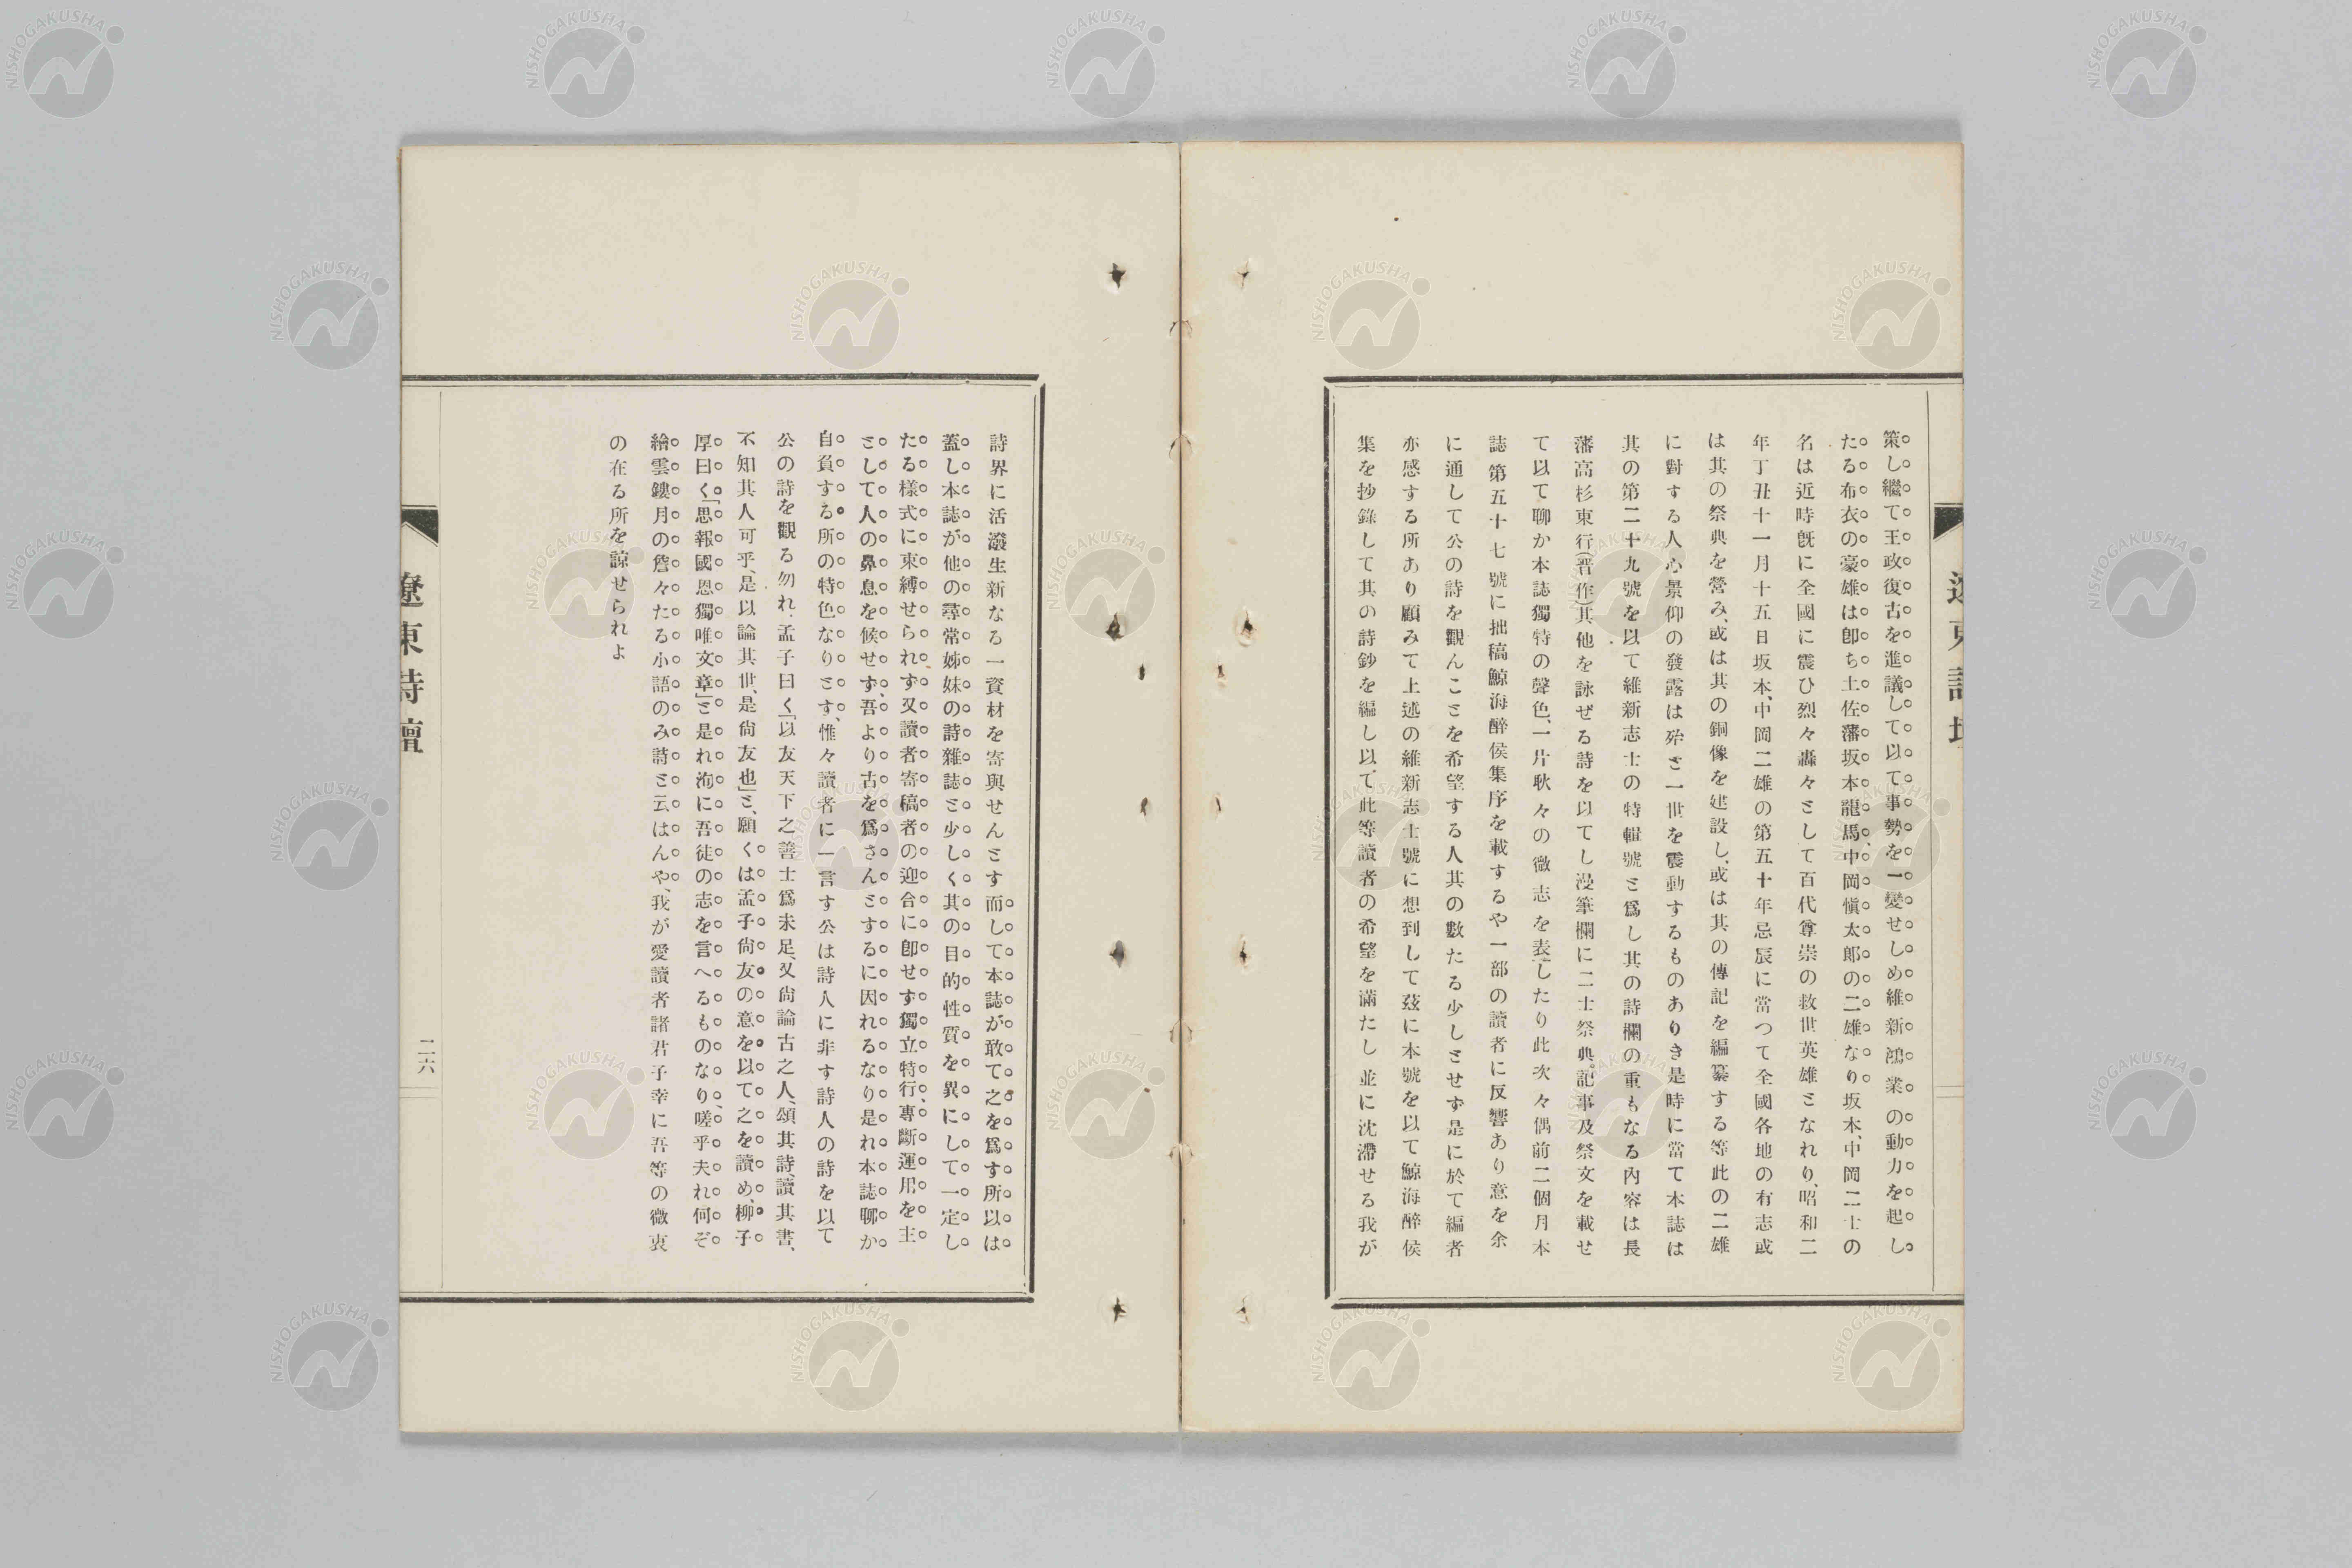 策し繼て王政復古を進議して以て事勢を一變せしめ維新鴻業の動力を起し
たる布衣の豪雄は卽ち土佐藩坂本龍馬、中岡愼太郞の二雄なり坂本、中岡二士の
名は近時旣に全國に震ひ烈々轟々として百代尊崇の救世英雄となれり、昭和二
年丁丑十一月十五日坂本、中岡二雄の第五十年忌辰に當つて全國各地の有志或
は其の祭典を營み、或は其の銅像を建設し、或は其の傳記を編纂する等此の二雄
に對する人心景仰の發露は殆と一世を震動するものありき是時に當て本誌は
其の第二十九號を以て維新志士の特輯號と爲し其の詩欄の重もなる內容は長
藩高杉東行(晋作)其他を詠ぜる詩を以てし漫筆欄に二士祭典記事及祭文を載せ
て以て聊か本誌獨特の聲色、一片耿々の微志を表したり此次々偶前二個月本
誌第五十七號に拙稿鯨海醉侯集序を載するや一部の讀者に反響あり意を余
に通して公の詩を觀んことを希望する人其の數たる少しとせず是に於て編者
亦感する所あり顧みて上述の維新志士號に想到して茲に本號を以て鯨海醉侯
集を抄錄して其の詩鈔を編し以て此等讀者の希望を滿たし並に沈滯せる我が
詩界に活潑生新なる一資材を寄與せんとす而して本誌が敢て之を爲す所以は
蓋し本誌が他の尋常姊妹の詩雜誌と少しく其の目的性質を異にして一定し
たる樣式に束縛せられす又讀者寄稿者の迎合に卽せす獨立特行、專斷運用を主
として人の鼻息を候せず、吾より古を爲さんとするに因れるなり是れ本誌聊か
自負する所の特色なりとす、惟々讀者に一言す公は詩人に非す詩人の詩を以て
公の詩を觀る勿れ孟子曰く「以友天下之善士爲未足、又尙論古之人、頌其詩、讀其書、
不知其人可乎、是以論其世、是尙友也」と、願くは孟子尙友の意を以て之を讀め、柳子
厚曰く「思報國恩獨唯文章」と是れ洵に吾徒の志を言へるものなり、嗟乎夫れ何ぞ
繪雲鏤月の詹々たる小語のみ詩と云はんや、我が愛讀者諸君子幸に吾等の微衷
の在る所を諒せられよ
遼東詩壇
二六